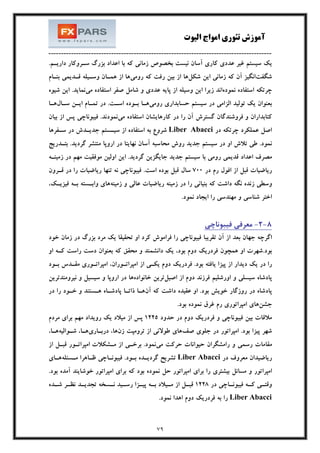 FXPARS
WWW.FXPARS.COM
آموزش تئوری امواج الیوت
یک سیستم غیر عددی کاری آسان نیست بخصوص زمانی که با اعداد بزرگ سروکار داریم.
شگفت‌انگیز آن که زمانی این شکل‌ها از بین رفت که رومی‌ها از همان وسیله قدیمی بنام
چرتکه استفاده نمودند زیرا این وسیله از پایه عددی و شامل صفر استفاده می‌نماید. این شیوه
بعنوان یک تولید الزامی در سیستم حسابداری رومی‌ها بوده است. در تمام این سال‌ها
کتابداران و فروشندگان گسترش آن را در کارهایشان استفاده می‌نمودند. فیبوناچی پس از بیان
اصل عملکرد چرتکه در Liber Abacci شروع به استفاده از سیستم جدیدش در سفرها
نمود. طی تلاش او در سیستم جدید روش محاسبه آسان نهایتا در اروپا منتشر گردید. بتدریج
مصرف اعداد قدیمی رومی با سیستم جدید جایگزین گردید. این اولین موفقیت مهم در زمینه
ریاضیات قبل از افول رم در ۷۰۰ سال قبل بوده است. فیبوناچی نه تنها ریاضیات را در قرون
وسطی زنده نگه داشت که بنیانی را در زمینه ریاضیات عالی و زمینه‌های وابسته به فیزیک،
اختر شناسی و مهندسی را ایجاد نمود.
۸-۳- معرفی فیبوناچی
اگرچه جهان بعد از آن تقریبا فیبوناچی را فراموش کرد او تحقیقا یک مرد بزرگ در زمان خود
بود.شهرت او همچون فردریک دوم بود، یک دانشمند و محقق که بعنوان دست راست که او
را در یک دیدار از پیزا یافته بود. فردریک دوم یکی از امپراتوران، امپراتوری مقدس بود
پادشاه سیسلی و اورشلیم فرزند دوم از اصیل‌ترین خانواده‌ها در اروپا و سیسل و نیرومندترین
پادشاه در روزگار خویش بود. او عقیده داشت که آن‌ها ذاتا پادشاه هستند و خود را در
جشن‌های امپراتوری رم غرق نموده بود.
ملاقات بین فیبوناچی و فردریک دوم در حدود ۱۲۲۵ پس از میلاد یک رویداد مهم برای مردم
شهر پیزا بود. امپراتور در جلوی صف‌های طولانی از ترومپت زن‌ها، درباری‌ها، شوالیه‌ها،
مقامات رسمی و رامشگران حیوانات حرکت می‌نمود. برخی از مشکلات امپراتور قبل از
ریاضیدان معروف در Liber Abacci تشریح گردیده بود. فیبوناچی ظاهرا مسئله‌های
امپراتور و مسائل بیشتری را برای امپراتور حل نموده بود که برای امپراتور خوشایند آمده بود.
وقتی که فیبوناچی در ۱۲۲۸ قبل از میلاد به پیزا رسید نسخه تجدید نظر شده
Liber Abacci را به فردریک دوم اهدا نمود.
۷۹